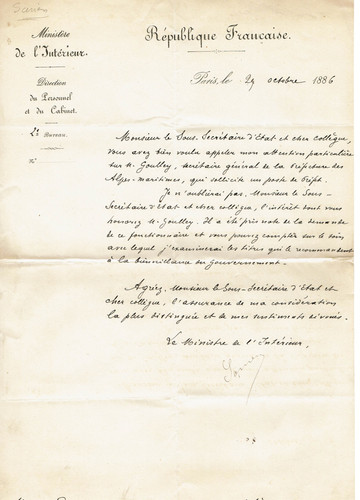 Ministère
de l'Intérieur.
République Française.
Direction
du Personnel
et du Cabinet.
Paris, le 29 octobre 1886
2e Bureau.
N°
Monsieur le Sous-Secrétaire d'Etat et cher collègue,
vous avez bien voulu appeler mon attention particulière
sur M. Goulley, secrétaire général de la Préfecture des
Alpes-maritimes, qui sollicite un poste de Préfet.
Je n'oublierai pas, Monsieur le Sous-
Secrétaire d'Etat et cher collègue, l'intérêt dont vous
honorez M. Goulley. Il a été pris note de la demande
de ce fonctionnaire et vous pouvez compter sur le soin
avec lequel j'examinerai les titres qui le recommandent
à la bienveillance du Gouvernement.
Agréez, Monsieur le Sous-Secrétaire d'Etat et
cher collègue, l'assurance de ma considération
la plus distinguée et de mes sentiments dévoués.
Le Ministre de l'Intérieur,
Sarrien